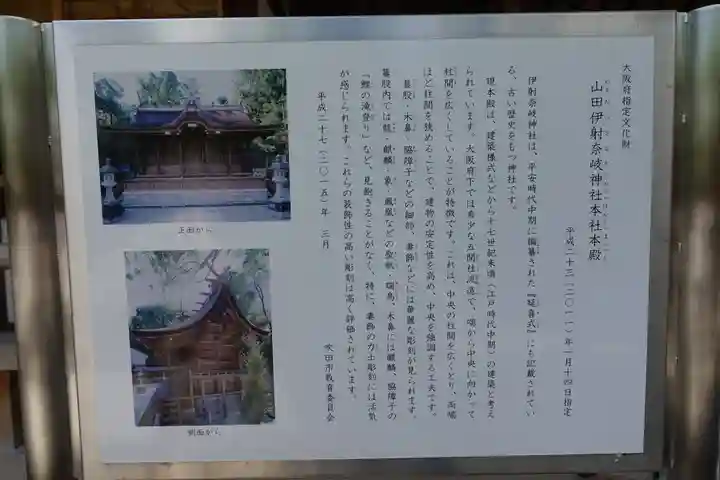 大阪府指定文化財
山田伊射奈岐神社本社本殿
平成二十三(二〇一一)年一月十四日指定
伊射奈岐神社は、平安時代中期に編纂された『延喜式』にも記載されてい
る、古い歴史をもつ神社です。
現本殿は、建築様式などから十七世紀末頃(江戸時代中期)の建築と考え
られています。大阪府下では希少な五間社流造で、端から中央に向かって
柱間を広くしていることが特徴です。これは、中央の柱間を広くとり、両端
ほど柱間を狭めることで、建物の安定性を高め、中央を強調する工夫です。
蟇股・木鼻・脇障子などの細部、妻飾などには華麗な彫刻が見られます。
蟇股内では龍・麒麟・象・鳳凰などの聖獣・瑞鳥、木鼻には麒麟、脇障子の
「鯉の滝登り」など、見飽きることがなく、特に、妻飾の力士彫刻には活気
が感じられます。これらの装飾性の高い彫刻は高く評価されています。
平成二十七(二〇一五)年 三月
吹田市教育委員会
正面から
側面から